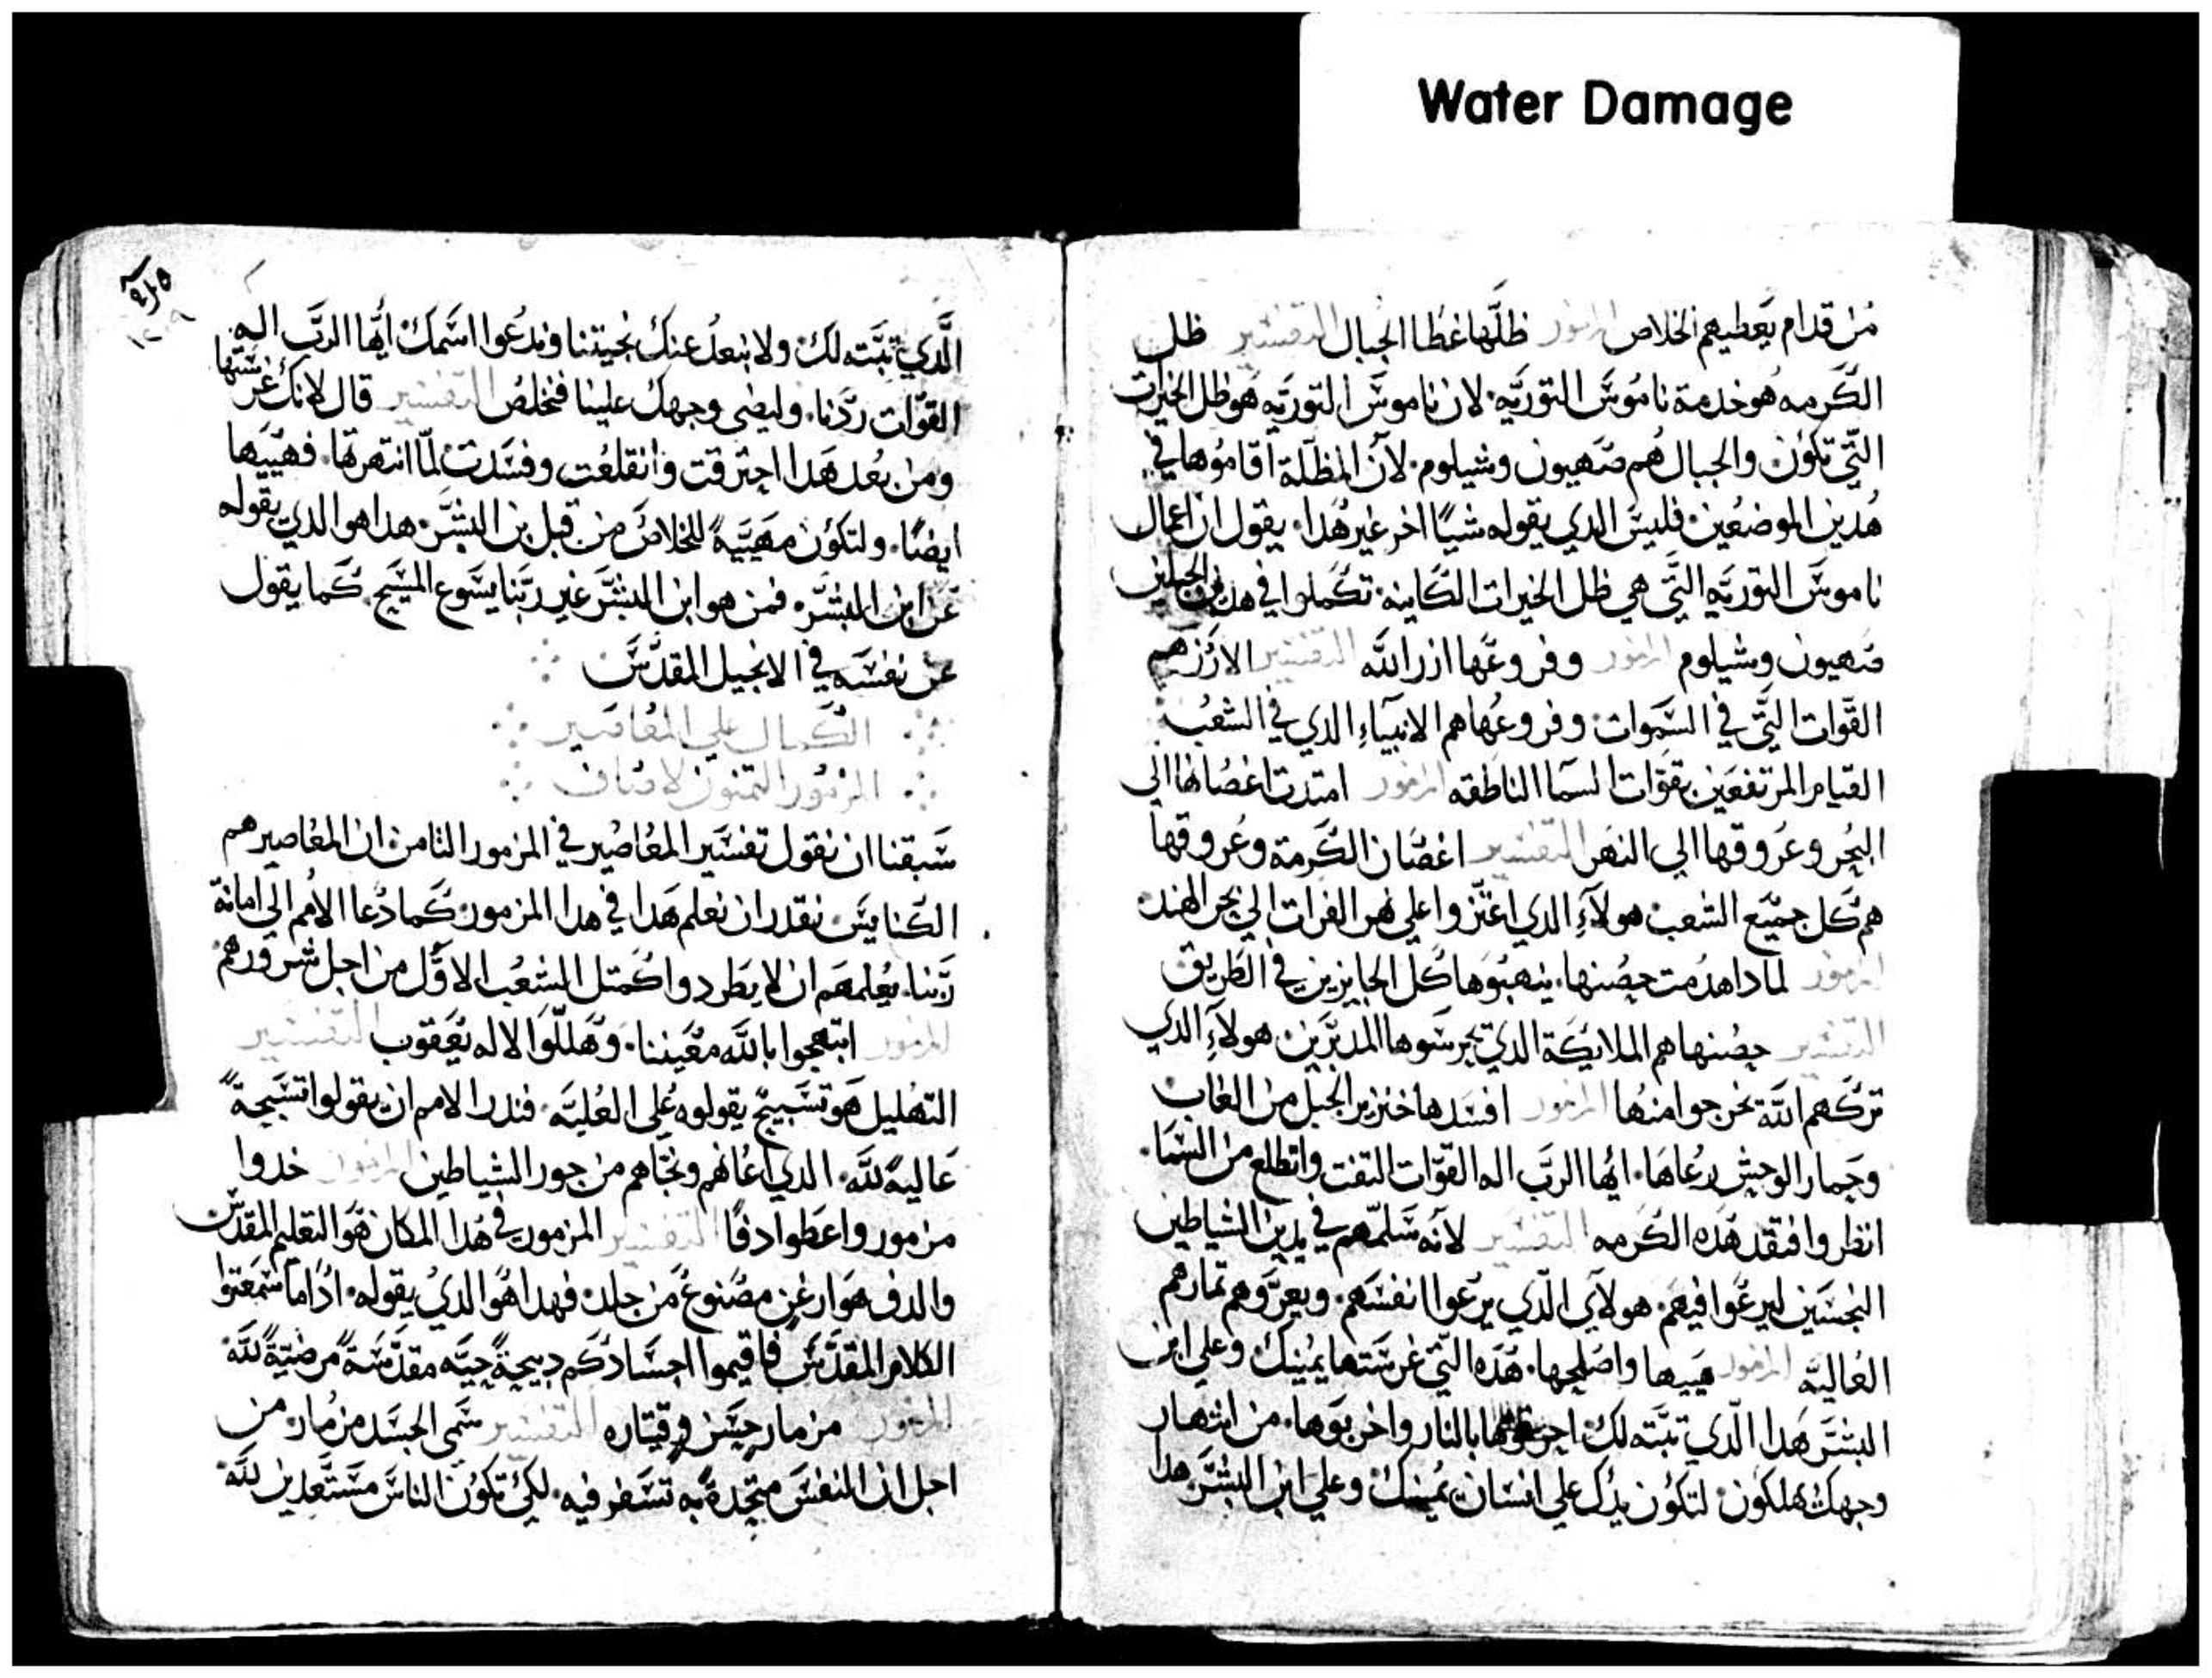 Water Damage
من قدام يعطيهم الخلاص المزمور ظلها غطا الجبال التفسير ظل
الكرمه هو خدمة ناموس التوريه لان ناموس التوريه هو ظل الخيرات
التي تكون والجبال هم صهيون وشيلوم لان المظلة اقاموها في
هدين الموضعين فليس الدي يقوله شيا اخر غير هدا يقول ان اعمال
ناموس التوريه التي هي ظل الخيرات الكاينه تكملوا في الجبلين
صهيون وشيلوم المزمور وفروعها ارز الله التفسير الارز هم
القوات التي في السموات وفروعها هم الانبياء الدي في الشعب
القيام المرتفعين بقوات السما الناطقه المزمور امتدت اغصانها الى
البحر وعروقها الي النهر التفسير اغصان الكرمة وعروقها
هم كل جميع الشعب هولاء الدي اعتزوا علي نهر الفرات الي بحر الهند
المزمور لمادا هدمت حصنها ينهبوها كل الجايزين في الطريق
التفسير حصنها هم الملايكة الدي يحرسوها المدبرين هولاء الدي
تركهم الله يخرجوا منها المزمور افسدها خنزير الجبل من الغاب
وحمار الوحش رعاها ايها الرب اله القوات التفت واتطلع من السما
انظر وافتقد هده الكرمه التفسير لانه سلمهم في يدين الشياطين
النجسين ليرعوا فيهم هولاي الدي يرعوا انفسهم ويعروهم تمارهم
العاليه المزمور هييها واصلحها هده التي غرستها يمينك وعلي ابن
البشر هدا الدي تبته لك بالنار واخربوها من انتهار
وجهك يهلكون لتكون يدك علي انسان يمينك وعلي ابن البشر هدا
الدي تبته لك ولا نبعد عنك نحيتنا وندعوا اسمك ايها الرب اله
القوات ردنا وليضي وجهك علينا فنخلص التفسير قال لانك غرستها
ومن بعد هدا احترقت وانقلعت وفسدت لما انتهرتها فهييها
ايضا ولتكون مهيية للخلاص من قبل بن البشر هدا هو الدي يقوله
عن ابن البشر فمن هو ابن البشر غير ربنا يسوع المسيح كما يقول
عن نفسه في الانجيل المقدس
الكمال علي المعاصير
المزمور التمنون لاصاف
سبقنا ان نقول تفسير المعاصير في المزمور التامن ان المعاصير هم
الكنايس نقدر ان نعلم هدا في هدا المزمور كما دعا الامم الي امانة
ربنا يعلمهم ان لا يطردوا كمتل الشعب الاول من اجل شرورهم
المزمور ابتهجوا بالله معيننا وهللوا لاله يعقوب التفسير
التهليل هو تسبيح يقولوه علي الغلبه فندر الامم ان يقولوا تسبيحة
عالية لله الدي اعانهم ونجاهم من جور الشياطين المزمور خدوا
مزمور واعطوا دفا التفسير المزمور في هدا المكان هو التعليم المقدس
والدف هو ارغن مصنوع من جلد فهدا هو الدي يقوله ادا ما سمعتوا
الكلام المقدس فاقيموا اجسادكم دبيحة حيه مقدسة مرضية لله
المزمور مزمار حسن وقيتاره التفسير سمي الجسد مزمار من
اجل ان النفس متحدة به تسفر فيه لكي تكون الناس مستعدين لله